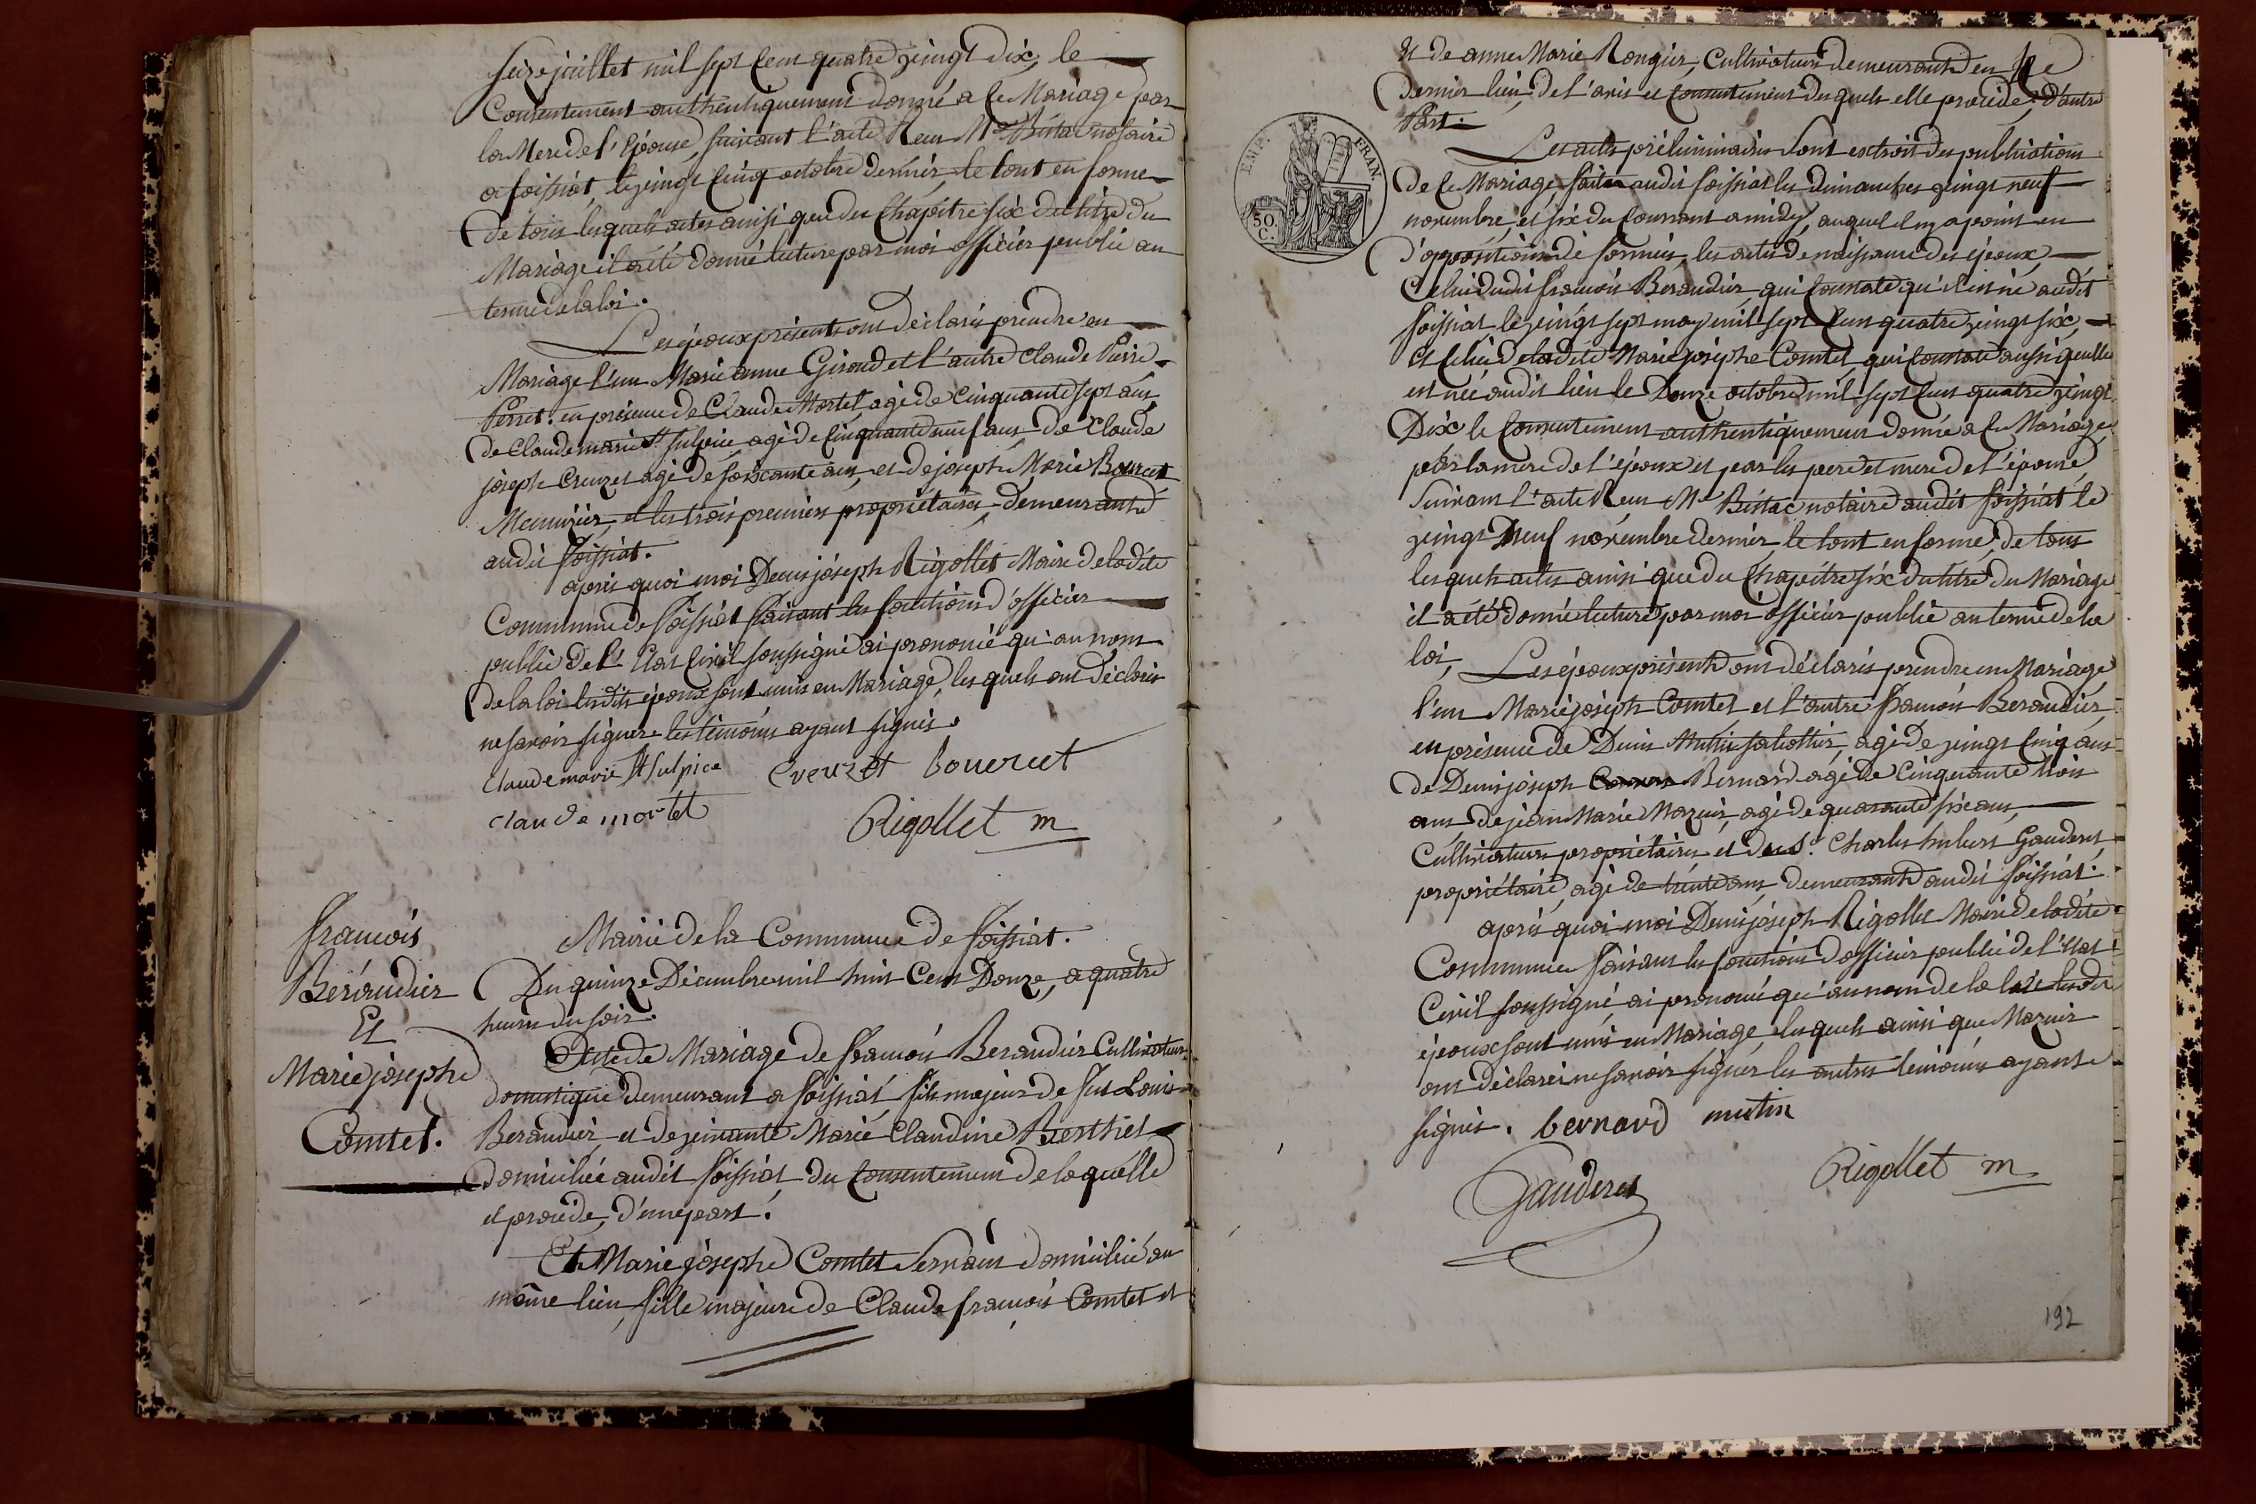 seize juillet mil sept cent quatre vingt dix, le
Consentement authentiquement donné a ce Mariage par
la Mere de l'Epouse, suivant l'acte Reçu Me notaire
a foissiat, le vingt cinq octobre dernier, le tout en forme
de tous lesquels actes ainsi que du Chapitre six du titre du
Mariage il a été donné lecture par moi officier public au
terme de la loi.
Les époux présents ont déclarés prendre en
Mariage l'un Marie anne Giroud et l'autre Claude Pierre
Perret. en présence de Claude Mortel agé de Cinquante sept ans
de Claude marie St sulpice agé de Cinquante neuf ans, de Claude
joseph Creuzet agé de soixante ans, et de joseph Marie Bourcet
Meunier, et les trois premiers propriétaires, demeurants
audit foissiat.
après quoi moi Denis joseph Rigollet Maire de ladite
Commune de foissiat faisant les fonctions d'officier
public de l'Etat Civil soussigné ai prononcé qu'au nom
de la loi lesdits époux sont unis en Mariage, lesquels ont déclarés
ne savoir signer les témoins ayant signés.
Claude marie St sulpice Creuzet bourcet
claude mortel
Rigollet m
francois
Beraudier
Et
Marie josephe
Comtet.
Mairie de la Commune de foissiat.
Du quinze Décembre mil huit Cent Douze, a quatre
heures du soir.
Acte de Mariage de francois Beraudier Cultivateur
domestique demeurant a foissiat, fils majeur de feu Louis
Beraudier, et de vivante Marie Claudine Berthet
domiciliée audit foissiat du Consentement de laquelle
il procède, d'une part.
Et Marie josephe Comtet Servante domiciliée au
même lieu, fille majeure de Claude francois Comtet et
Et de anne Marie Rongier, Cultivateurs demeurants en ce
dernier lieu, de l'avis et Consentement desquels elle procède, d'autre
Part.
Les actes préliminaires sont extrait des publications
de ce Mariage faites audit foissiat les dimanches vingt neuf
novembre, et six du Courant a midy, auquel il n'y a point eu
d'oppositions de formées, les actes de naissance des époux,
Celui dudit francois Beraudier qui Constate qu'il est né audit
foissiat le vingt sept may mil sept Cent quatre vingt six,
et Celui de ladite Marie josephe Comtet, qui Constate aussi qu'elle
est née audit lieu le Douze octobre mil sept Cent quatre vingt
Dix le Consentement authentiquement donné a ce Mariage
par la mere de l'époux et par les pere et mere de l'épouse
suivant l'acte Reçu Me notaire audit foissiat le
vingt Neuf novembre dernier, le tout en forme, de tous
lesquels actes ainsi que du Chapitre six du titre du Mariage
il a été donné lecture par moi officier public au terme de la
loi,
Les époux présents ont déclarés prendre en Mariage
l'un Marie joseph Comtet et l'autre francois Beraudier,
en présence de Denis Mutin sabottier, agé de vingt Cinq ans
de Denis joseph Bernard agé de Cinquante trois
ans de jean Marie Mazuir, agé de quarante six ans,
Cultivateurs propriétaires et de Sr. Charles hubert Gauderet
propriétaire, agé de trente ans demeurants audit foissiat.
après quoi moi Denis joseph Rigollet Maire de ladite
Commune faisant les fonctions d'officier public de l'Etat
Civil soussigné, ai prononcé qu'au nom de la loi lesdits
époux sont unis en Mariage, lesquels ainsi que Mazuir
ont déclarés ne savoir signer les autres témoins ayants
signés. bernard mutin
Gauderet
Rigollet m
EMP. FRAN.
50
C.
192